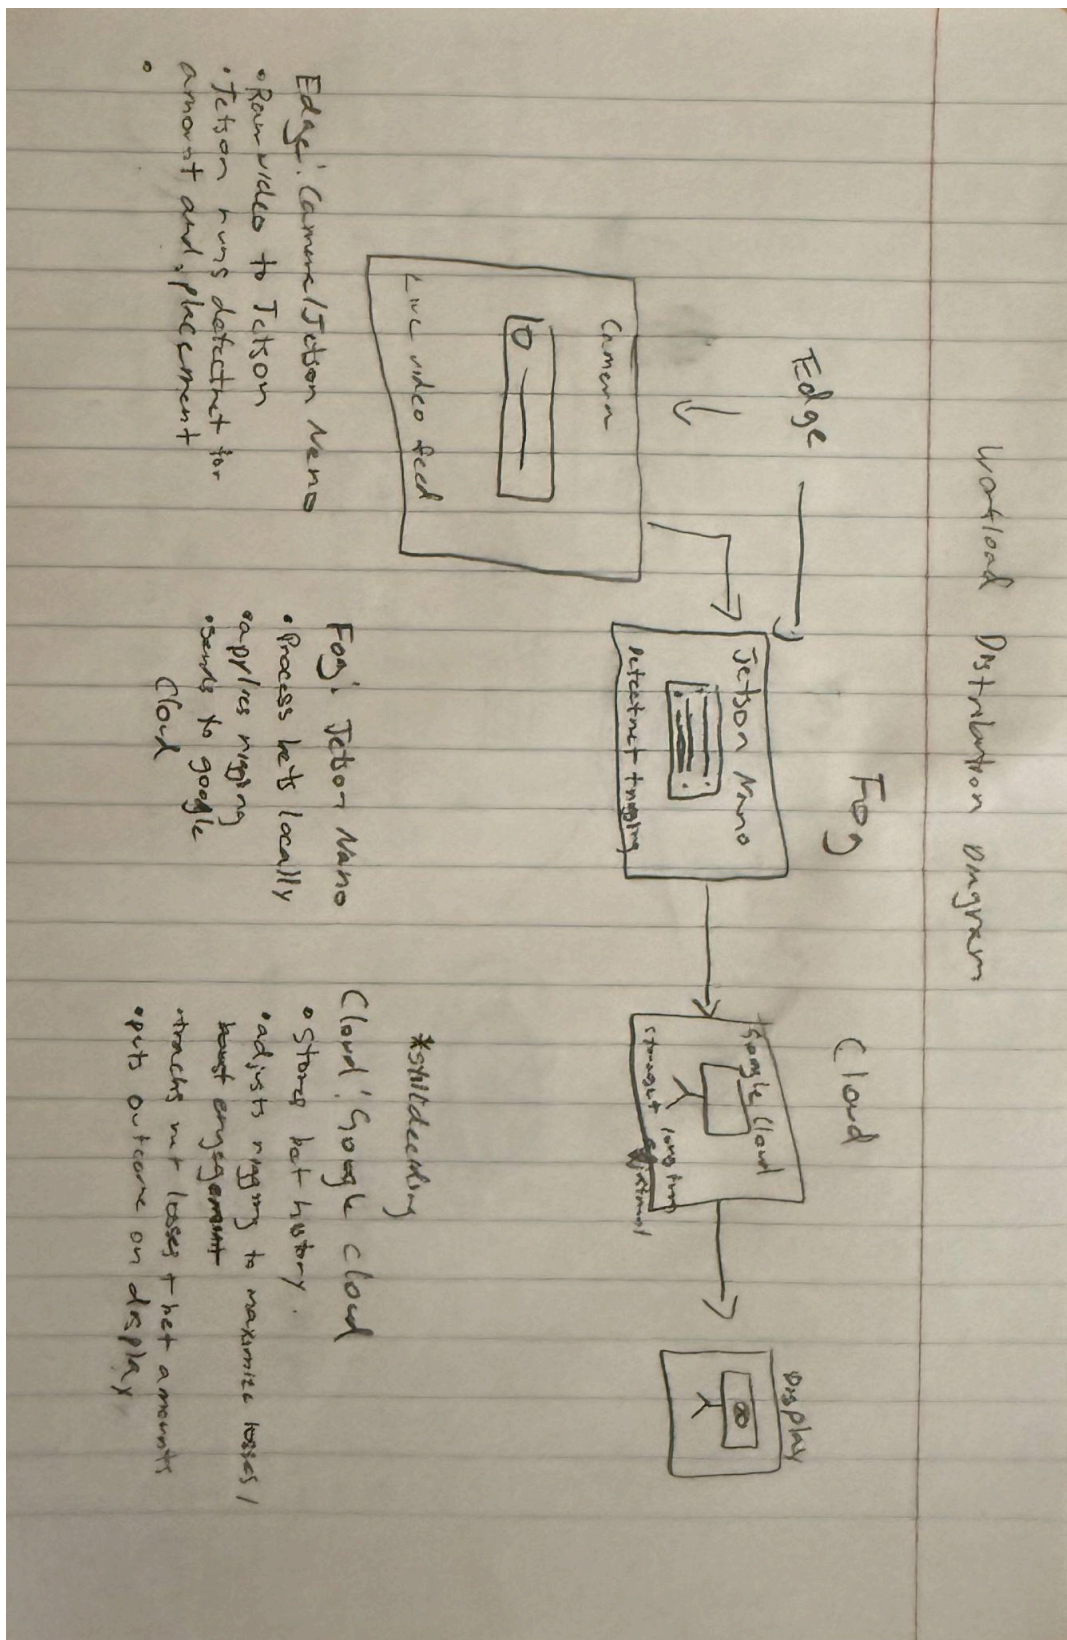 Workload Distribution Diagram
Edge
Fog
Cloud
Camera
Live video feed
Jetson Nano
Detectnet
Google Cloud
long term
Display
Edge: Camera/Jetson Nano
• Raw video to Jetson
• Jetson runs detectnet for
amount and placement
•
Fog: Jetson Nano
• Process bets locally
• applies rigging
• sends to google
Cloud
Cloud: Google Cloud
• Stores bet history.
• adjusts rigging to maximize losses /
engagement
• tracks net losses + bet amounts
• puts outcome on display